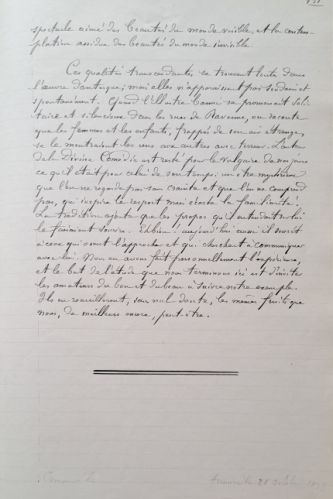 spectacle animé des beautés du monde visible, et la contem-
plation assidue des beautés du monde invisible.
Ces qualités transcendantes se trouvent toutes dans
l'œuvre dantesque; mais elles n'apparaissent pas soudain et
spontanément. Quand l'illustre banni se promenait soli-
taire et silencieux dans les rues de Ravenne, on raconte
que les femmes et les enfants, frappés de son air étrange,
se le montraient les uns aux autres avec terreur. L'auteur
de la Divine Comédie est resté pour le vulgaire de nos jours
ce qu'il était pour celui de son temps: un être mystérieux
que l'on ne regarde pas sans crainte et que l'on ne comprend
pas, qui inspire le respect mais exclut la familiarité.
La tradition ajoute que les propos qu'il entendait
le faisaient sourire. Eh bien! aujourd'hui aussi il sourit
à ceux qui osent l'approcher et qui cherchent à communiquer
avec lui. Nous en avons fait personnellement l'expérience,
et le but de l'étude que nous terminons ici est d'inviter
les amateurs du bon et du beau à suivre notre exemple.
Ils en recueilleront, sans nul doute, les mêmes fruits que
nous, de meilleurs encore, peut-être.